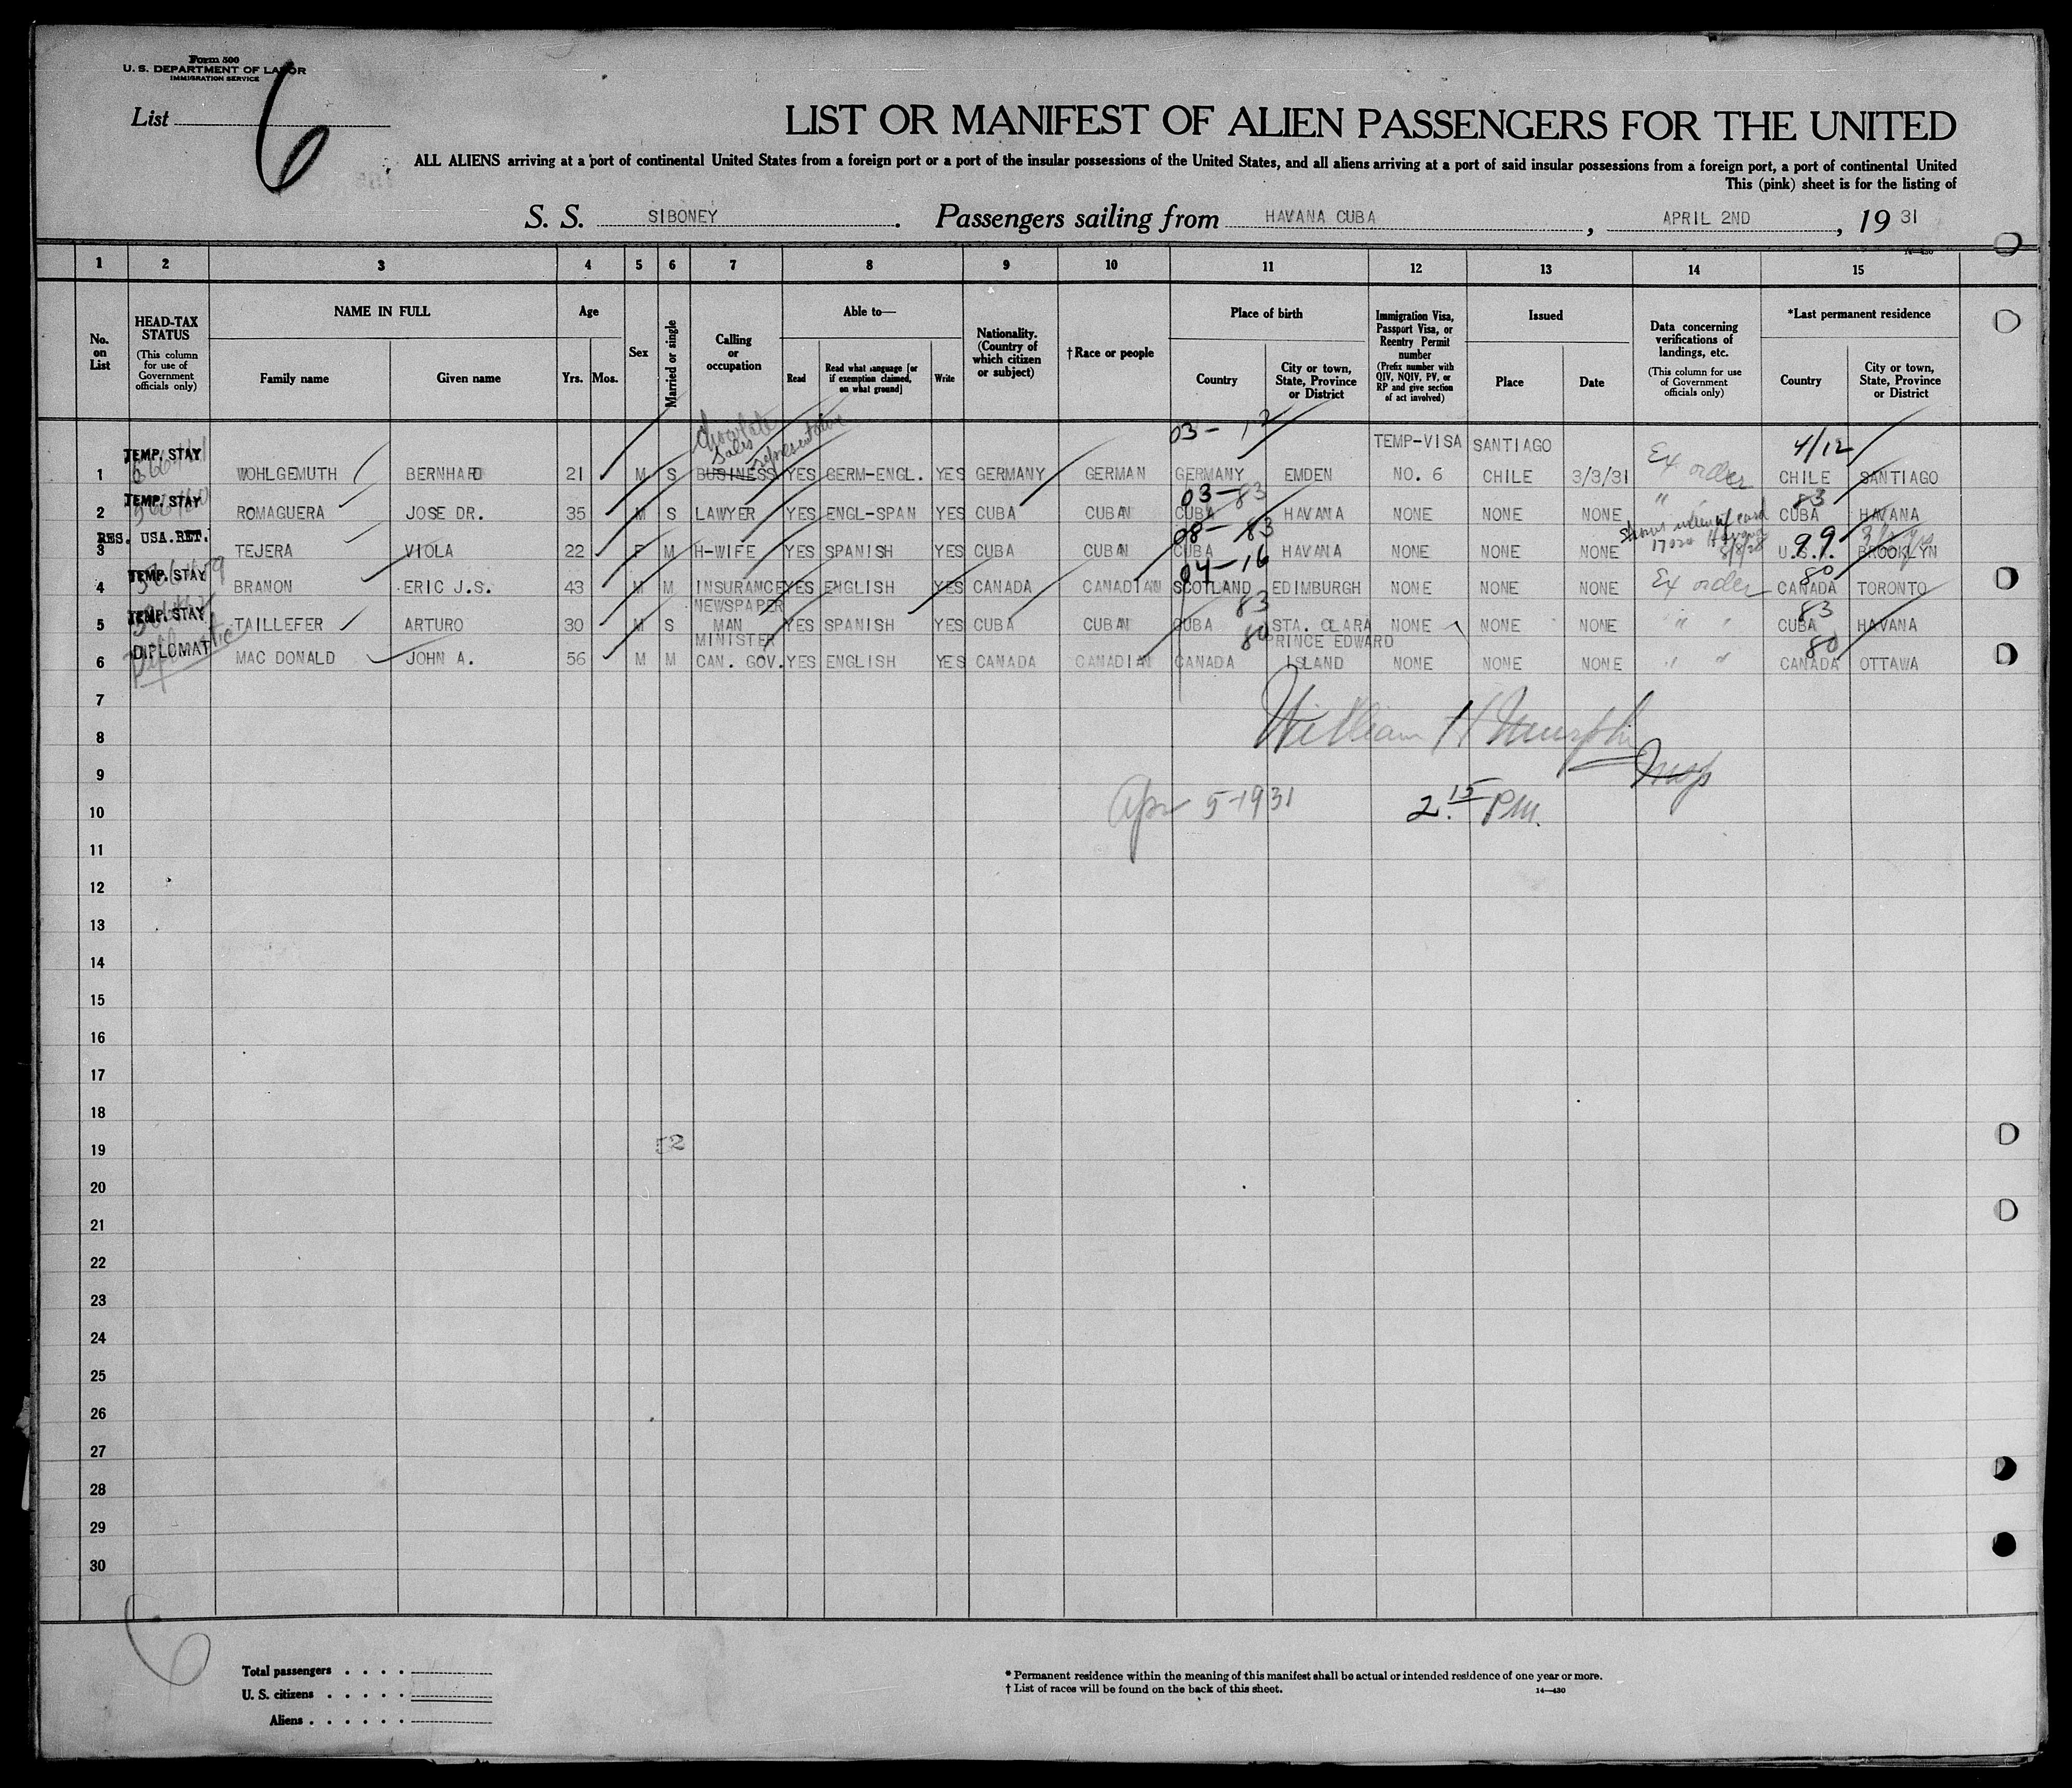 Form 500
U. S. DEPARTMENT OF LABOR
IMMIGRATION SERVICE
List 6
LIST OR MANIFEST OF ALIEN PASSENGERS FOR THE UNITED
ALL ALIENS arriving at a port of continental United States from a foreign port or a port of the insular possessions of the United States, and all aliens arriving at a port of said insular possessions from a foreign port, a port of continental United
This (pink) sheet is for the listing of
S. S. SIBONEY. Passengers sailing from HAVANA CUBA, APRIL 2ND, 19 31
14—430
1 2 3 4 5 6 7 8 9 10 11 12 13 14 15
No. on List
HEAD-TAX STATUS
(This column for use of Government officials only)
NAME IN FULL
Family name
Given name
Age
Yrs. Mos.
Sex
Married or single
Calling or occupation
Able to—
Read
Read what language [or if exemption claimed, on what ground]
Write
Nationality. (Country of which citizen or subject)
†Race or people
Place of birth
Country
City or town, State, Province or District
Immigration Visa, Passport Visa, or Reentry Permit number
(Prefix number with QIV, NQIV, PV, or RP and give section of act involved)
Issued
Place
Date
Data concerning verifications of landings, etc.
(This column for use of Government officials only)
*Last permanent residence
Country
City or town, State, Province or District
chocolate sales representative
03- 12
TEMP-VISA SANTIAGO
4/12
1 TEMP. STAY WOHLGEMUTH BERNHARD 21 M S BUSINESS YES GERM-ENGL. YES GERMANY GERMAN GERMANY EMDEN NO. 6 CHILE 3/3/31 Ex order CHILE SANTIAGO
03-83 83
2 TEMP. STAY ROMAGUERA JOSE DR. 35 M S LAWYER YES ENGL-SPAN YES CUBA CUBAN CUBA HAVANA NONE NONE NONE " " CUBA HAVANA
08-83 99
3 RES. USA.RET. TEJERA VIOLA 22 F M H-WIFE YES SPANISH YES CUBA CUBAN CUBA HAVANA NONE NONE NONE U.S. BROOKLYN
04-16 80
4 TEMP. STAY BRANON ERIC J.S. 43 M M INSURANCE YES ENGLISH YES CANADA CANADIAN SCOTLAND EDIMBURGH NONE NONE NONE Ex order CANADA TORONTO
NEWSPAPER 83 83
5 TEMP. STAY TAILLEFER ARTURO 30 M S MAN YES SPANISH YES CUBA CUBAN CUBA STA. CLARA NONE NONE NONE " " CUBA HAVANA
Diplomatic MINISTER 80 PRINCE EDWARD 80
6 DIPLOMAT MAC DONALD JOHN A. 56 M M CAN. GOV. YES ENGLISH YES CANADA CANADIAN CANADA ISLAND NONE NONE NONE " " CANADA OTTAWA
7
William H Murphy
8
Insp
9
10 Apr 5-1931 2.15 P.M.
11
12
13
14
15
16
17
18
19 52
20
21
22
23
24
25
26
27
28
29
30
6
Total passengers . . . .
U. S. citizens . . . . .
Aliens . . . . . .
* Permanent residence within the meaning of this manifest shall be actual or intended residence of one year or more.
† List of races will be found on the back of this sheet.
14—430